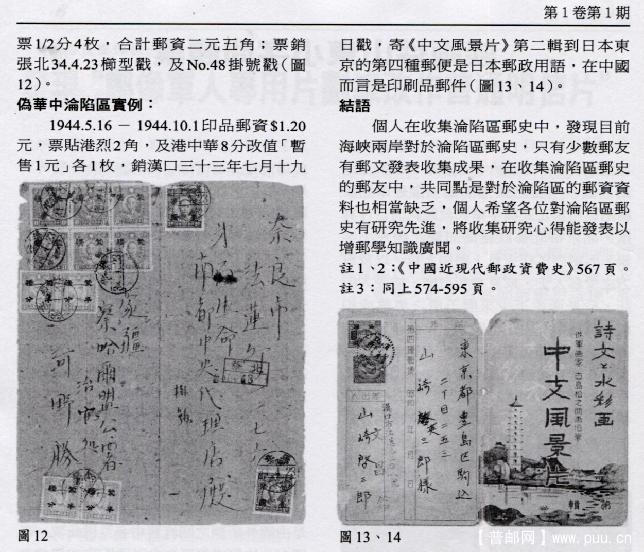 第1卷第1期
票1/2分4枚，合計郵資二元五角；票銷
張北34.4.23梯型戳，及No.48掛號戳（圖
12）。
偽華中淪陷區實例：
1944.5.16 － 1944.10.1印品郵資$1.20
元，票貼港烈2角，及港中華8分改值「暫
售1元」各1枚，銷漢口三十三年七月十九
奈良市
南都中央代理店殿
掛號
蒙疆
察哈爾盟公署
河野勝
圖12
日戳，寄《中文風景片》第二輯到日本東
京的第四種郵便是日本郵政用語，在中國
而言是印刷品郵件（圖13、14）。
結語
個人在收集淪陷區郵史中，發現目前
海峽兩岸對於淪陷區郵史，只有少數郵友
有郵文發表收集成果，在收集淪陷區郵史
的郵友中，共同點是對於淪陷區的郵資資
料也相當缺乏，個人希望各位對淪陷區郵
史有研究先進，將收集研究心得能發表以
增郵學知識廣聞。
註1、2：《中國近現代郵政資費史》567頁。
註3：同上574-595頁。
詩文と水彩画
中文風景片
東京都豊島区駒込
二丁目二五三
山崎啓三郎様
第四種郵便
山崎啓三郎
圖13、14
【普邮网】www.puu.cn